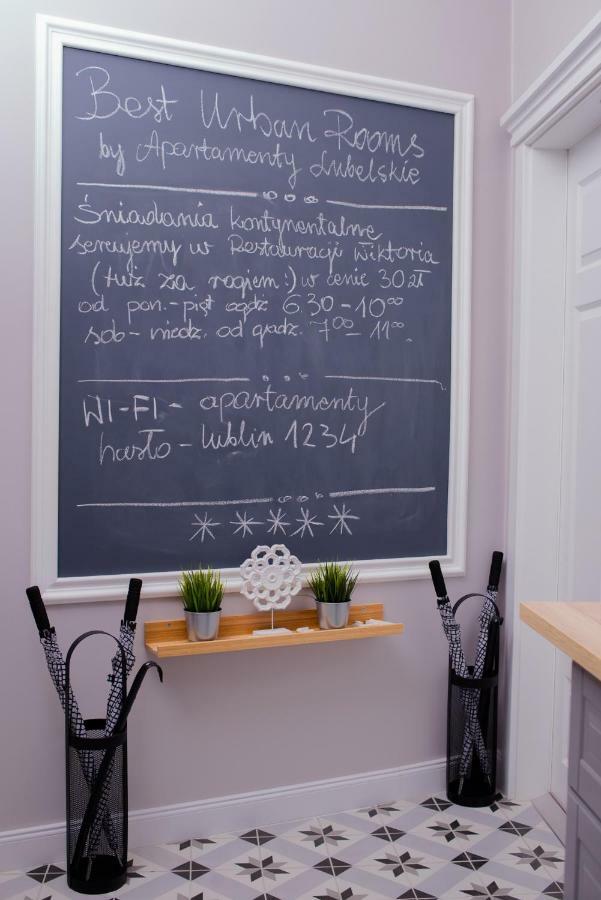 Best Urban Rooms
by Apartamenty Lubelskie
Śniadania kontynentalne
serwujemy w Restauracji Wiktoria
(tuż za rogiem :) w cenie 30 zł
od pon.-piąt godz 6.30 - 10⁰⁰
sob - niedz. od godz. 7⁰⁰ - 11⁰⁰.
WI-FI - apartamenty
hasło - lublin 1234